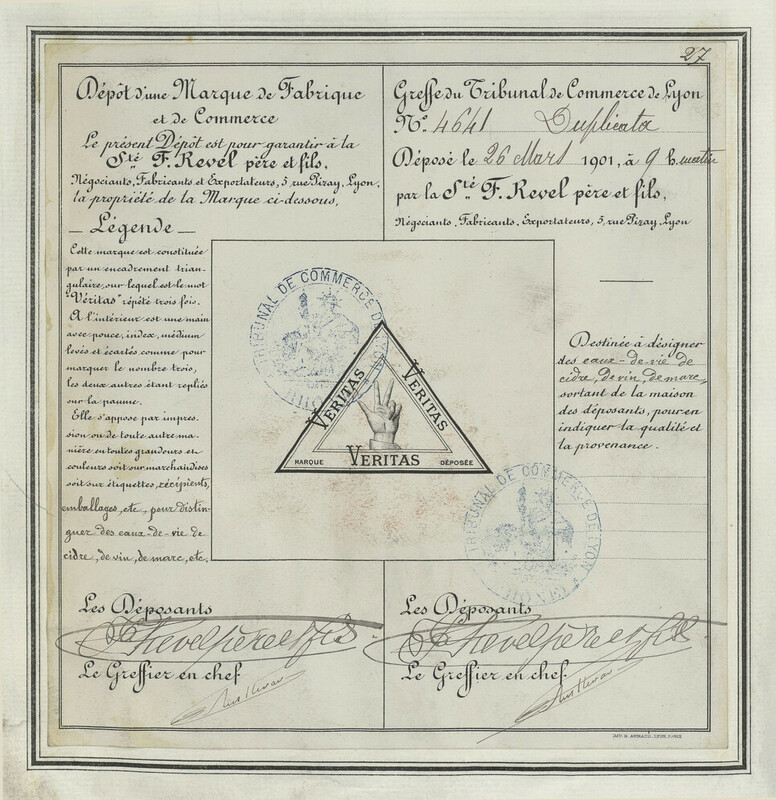 27
Dépôt d'une Marque de Fabrique
et de Commerce
Le présent Dépôt est pour garantir à la
Sté F. Revel père et fils,
Négociants, Fabricants et Exportateurs, 5 rue Pizay, Lyon,
la propriété de la Marque ci-dessous.
Légende
Cette marque est constituée
par un encadrement trian-
gulaire, sur lequel est le mot
"Véritas" répété trois fois.
A l'intérieur est une main
avec pouce, index, médium
levés et écartés comme pour
marquer le nombre trois,
les deux autres étant repliés
sur la paume.
Elle s'appose par impres-
sion ou de toute autre ma-
nière en toutes grandeurs et
couleurs soit sur marchandises
soit sur étiquettes, récipients,
emballages, etc, pour distin-
guer des eaux-de-vie de
cidre, de vin, de marc, etc.
Les Déposants
F Revel père et fils
Le Greffier en chef
Greffe du Tribunal de Commerce de Lyon
No. 4641 Duplicata
Déposé le 26 Mars 1901, à 9 h. matin
par la Sté F. Revel père et fils,
Négociants, Fabricants, Exportateurs, 5, rue Pizay, Lyon
Destinée à désigner
des eaux-de-vie de
cidre, de vin, de marc,
sortant de la maison
des déposants, pour en
indiquer la qualité et
la provenance.
Les Déposants
F Revel père et fils
Le Greffier en chef
TRIBUNAL DE COMMERCE DE LYON
VERITAS
VERITAS
VERITAS
MARQUE DÉPOSÉE
TRIBUNAL DE COMMERCE DE LYON